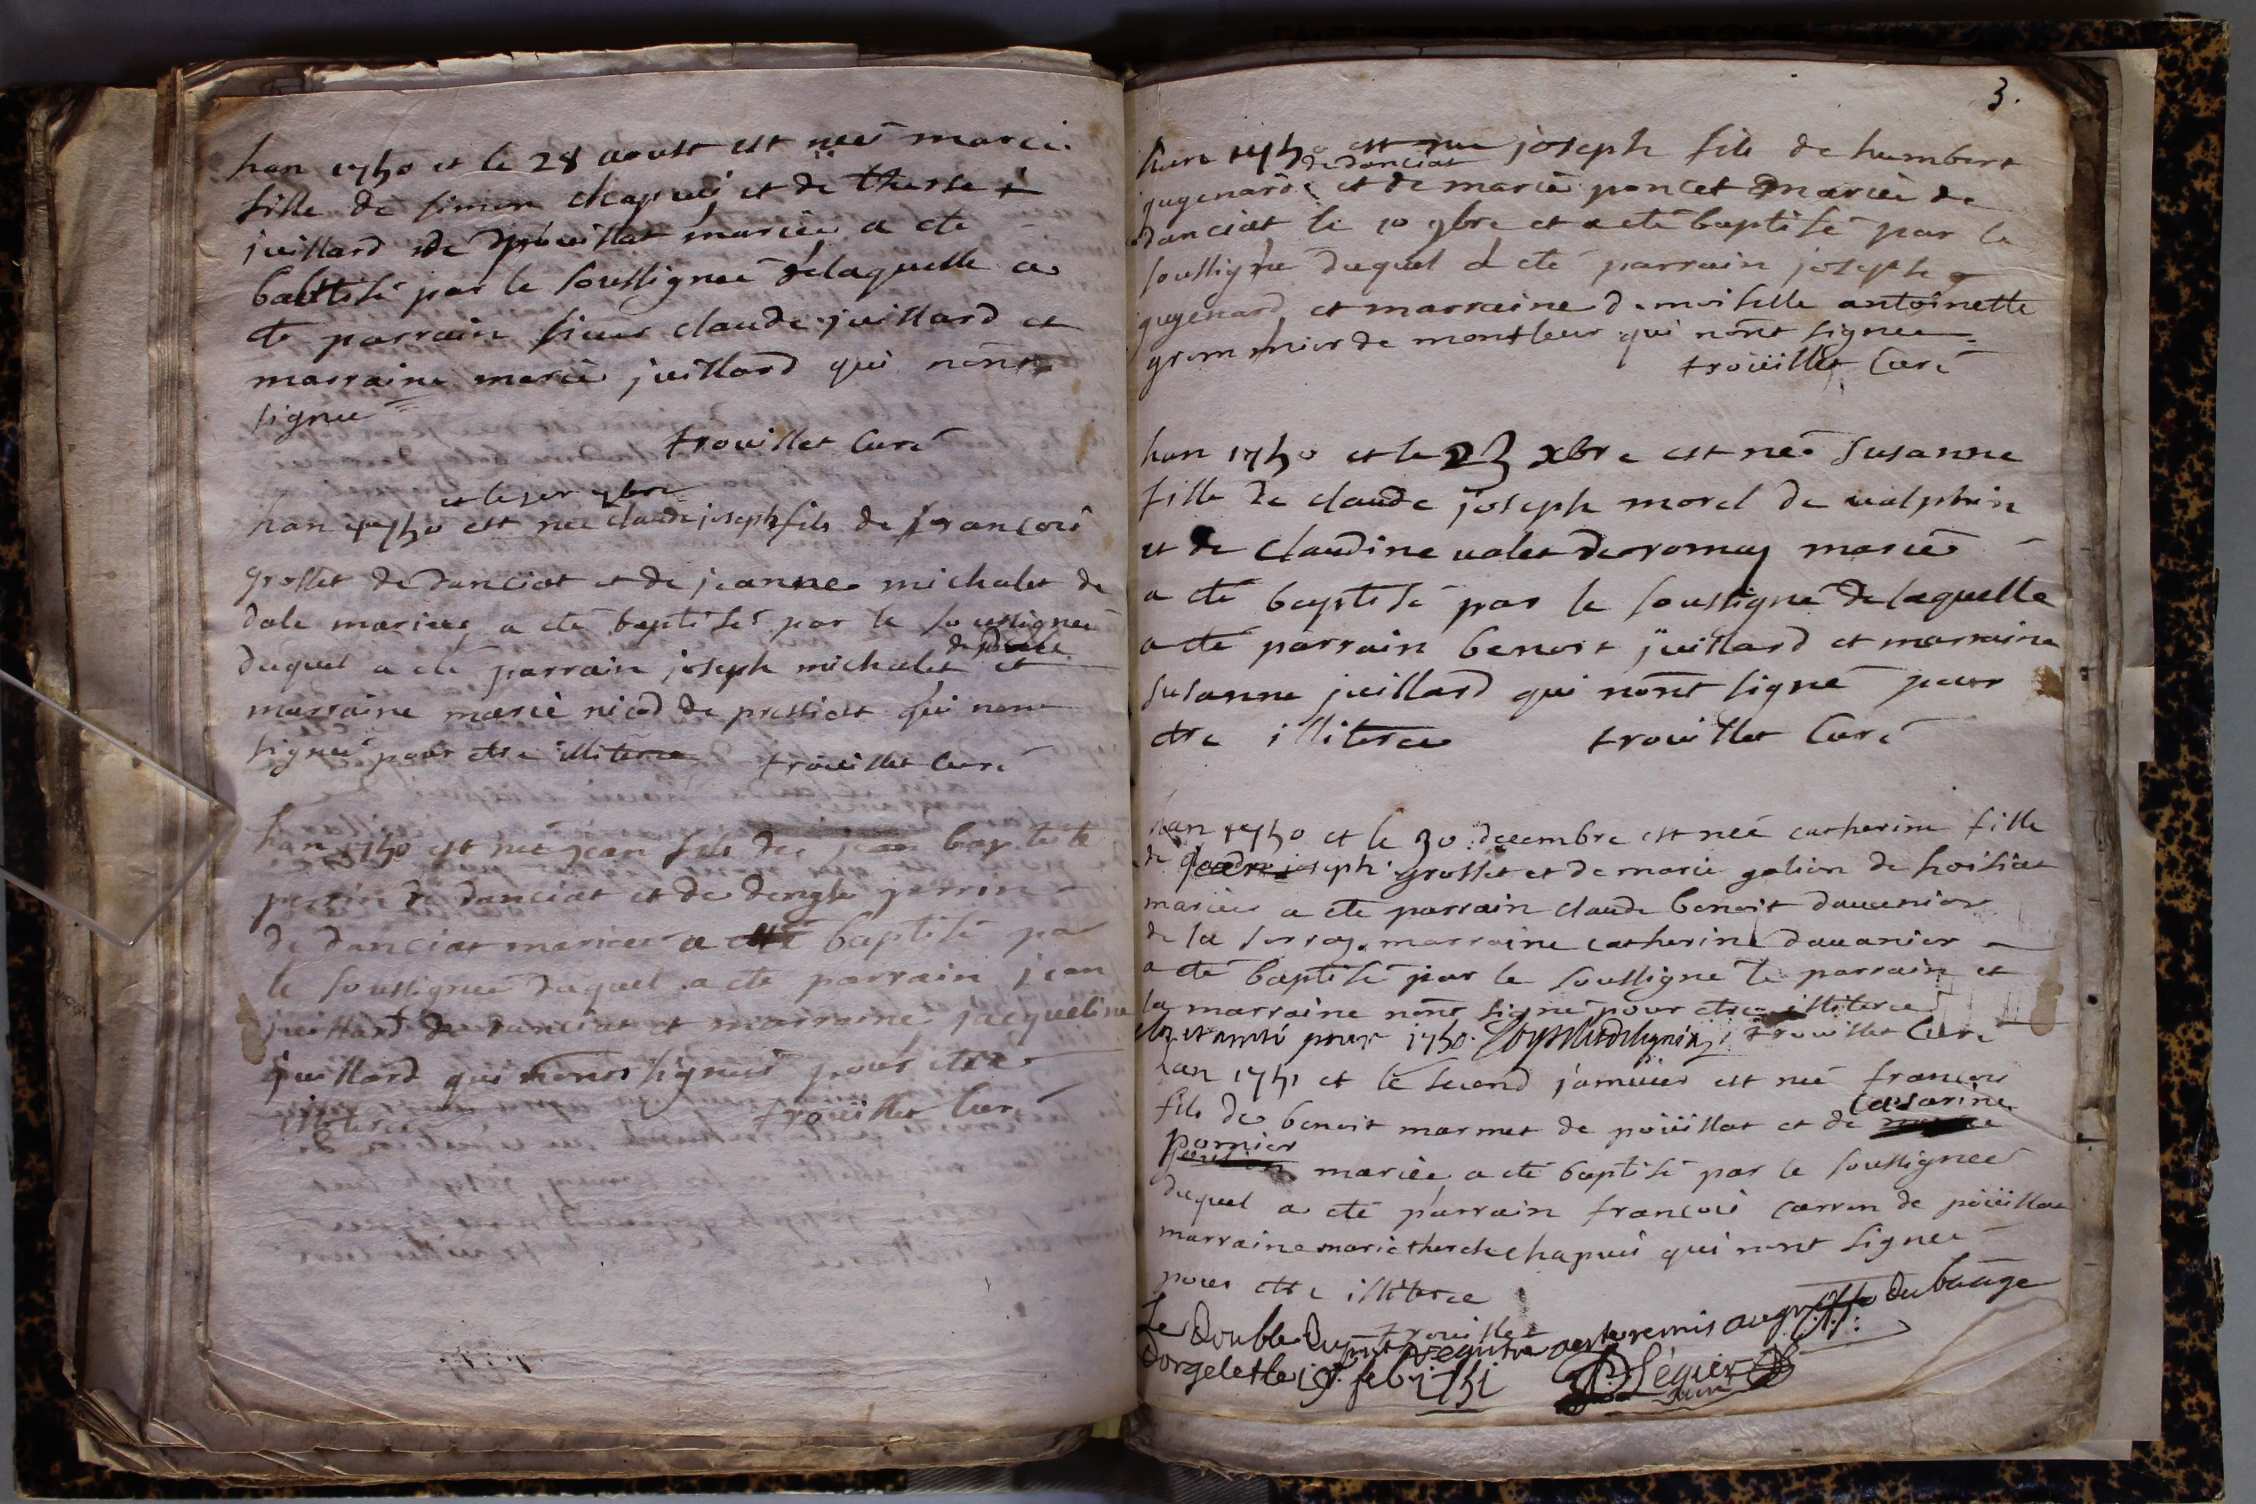 han 1750 et le 28 aoust est neé marie
fille de simon chapuis et de therese
juillard de pouillat mariée a eté
babtisé par le soussigneé delaquelle a
eté parrain sieur claude juillard et
marraine marie juillard qui nont
signee
trouillet Curé
et le 1er 9bre
han 1750 est neé claude joseph fils de françois
grosset de danciat et de jeanne michalet de
dale mariees a eté baptisé par le soussigneé
duquel a eté parrain joseph michalet et
marraine marie nicod de pressiat qui nont
signeé pour etre illiteree trouillet Curé
han 1750 est neé jean fils de jean baptiste
perrin de danciat et de perrin
de danciat mariees a eté baptisé par
le soussigneé duquel a eté parrain jean
juillard de danciat et marraine jacqueline
juillard qui nont signeé pour etre
illiteree trouillet Curé
3.
han 1750 est né joseph fils de humbert
de danciat
gugenard et de marie poncet mariée de
danciat le 10 9bre et a eté baptisé par le
soussigne duquel a eté parrain joseph
gugenard et marraine demoiselle antoinette
grommier de montfleur qui nont signee
trouillet Curé
han 1750 et le 23 xbre est neé susanne
fille de claude joseph morel de ualphin
et de claudine ualet de mariés
a eté baptisé par le soussigné delaquelle
a eté parrain benoit juillard et marraine
susanne juillard qui nont signé pour
etre illiteree trouillet Curé
han 1750 et le 30 decembre est neé catherine fille
de claude joseph grosset et de marie galion de hoisiat
mariees a eté parrain claude benoit dauanier
de la marraine catherine dauanier
a eté baptisé par le soussigné le parrain et
la marraine nont signé pour etre illiteree
clos et arreté pour 1750. trouillet Curé
lan 1751 et le second januier est neé françois
fils de benoit marmet de poüillat et de
Cesarine
pornier
mariée a eté baptisé par le soussigneé
duquel a eté parrain françois carron de poüillat
marraine marie therese chapuis qui nont signeé
pour etre illiteree
trouillet
Le Double du pnt registre a esté remis au greffe du bailage
Dorgelet le 19 feb. 1751